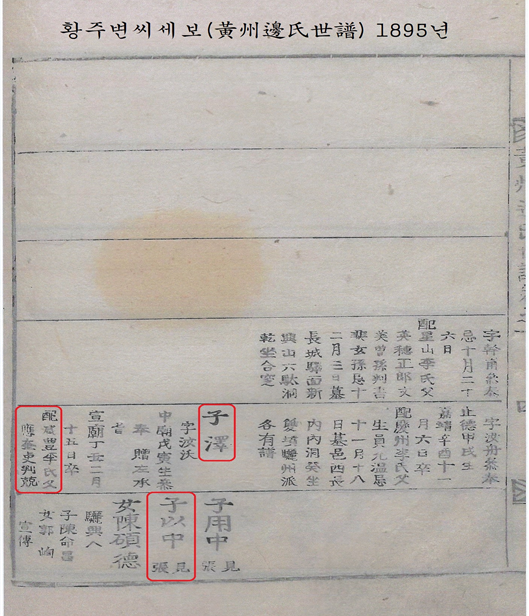 황주변씨세보(黃州邊氏世譜) 1895년
字幹甫叅奉
忌十月二十
六日
配星山李氏父
正郞文
美曾孫判書
女孫忌十
二月三日墓
長城驛面新
興山六駄洞
乾坐合窆
字汝舟叅奉
正德甲戌生
嘉靖辛酉十一
月六日卒
配慶州李氏父
生員九溫忌
十一月十八
日墓邑西長
內內洞癸坐
雙墳驪州派
各有譜
子澤
字汝沃
中廟戊寅生叅
奉 贈左承
旨
宣廟丁丑二月
十五日卒
配咸豊李氏父
應蓁吏判兢
子用中 見張
子以中 見張
女陳碩德
驪興人
子陳命昌
女郭峋
宣傳